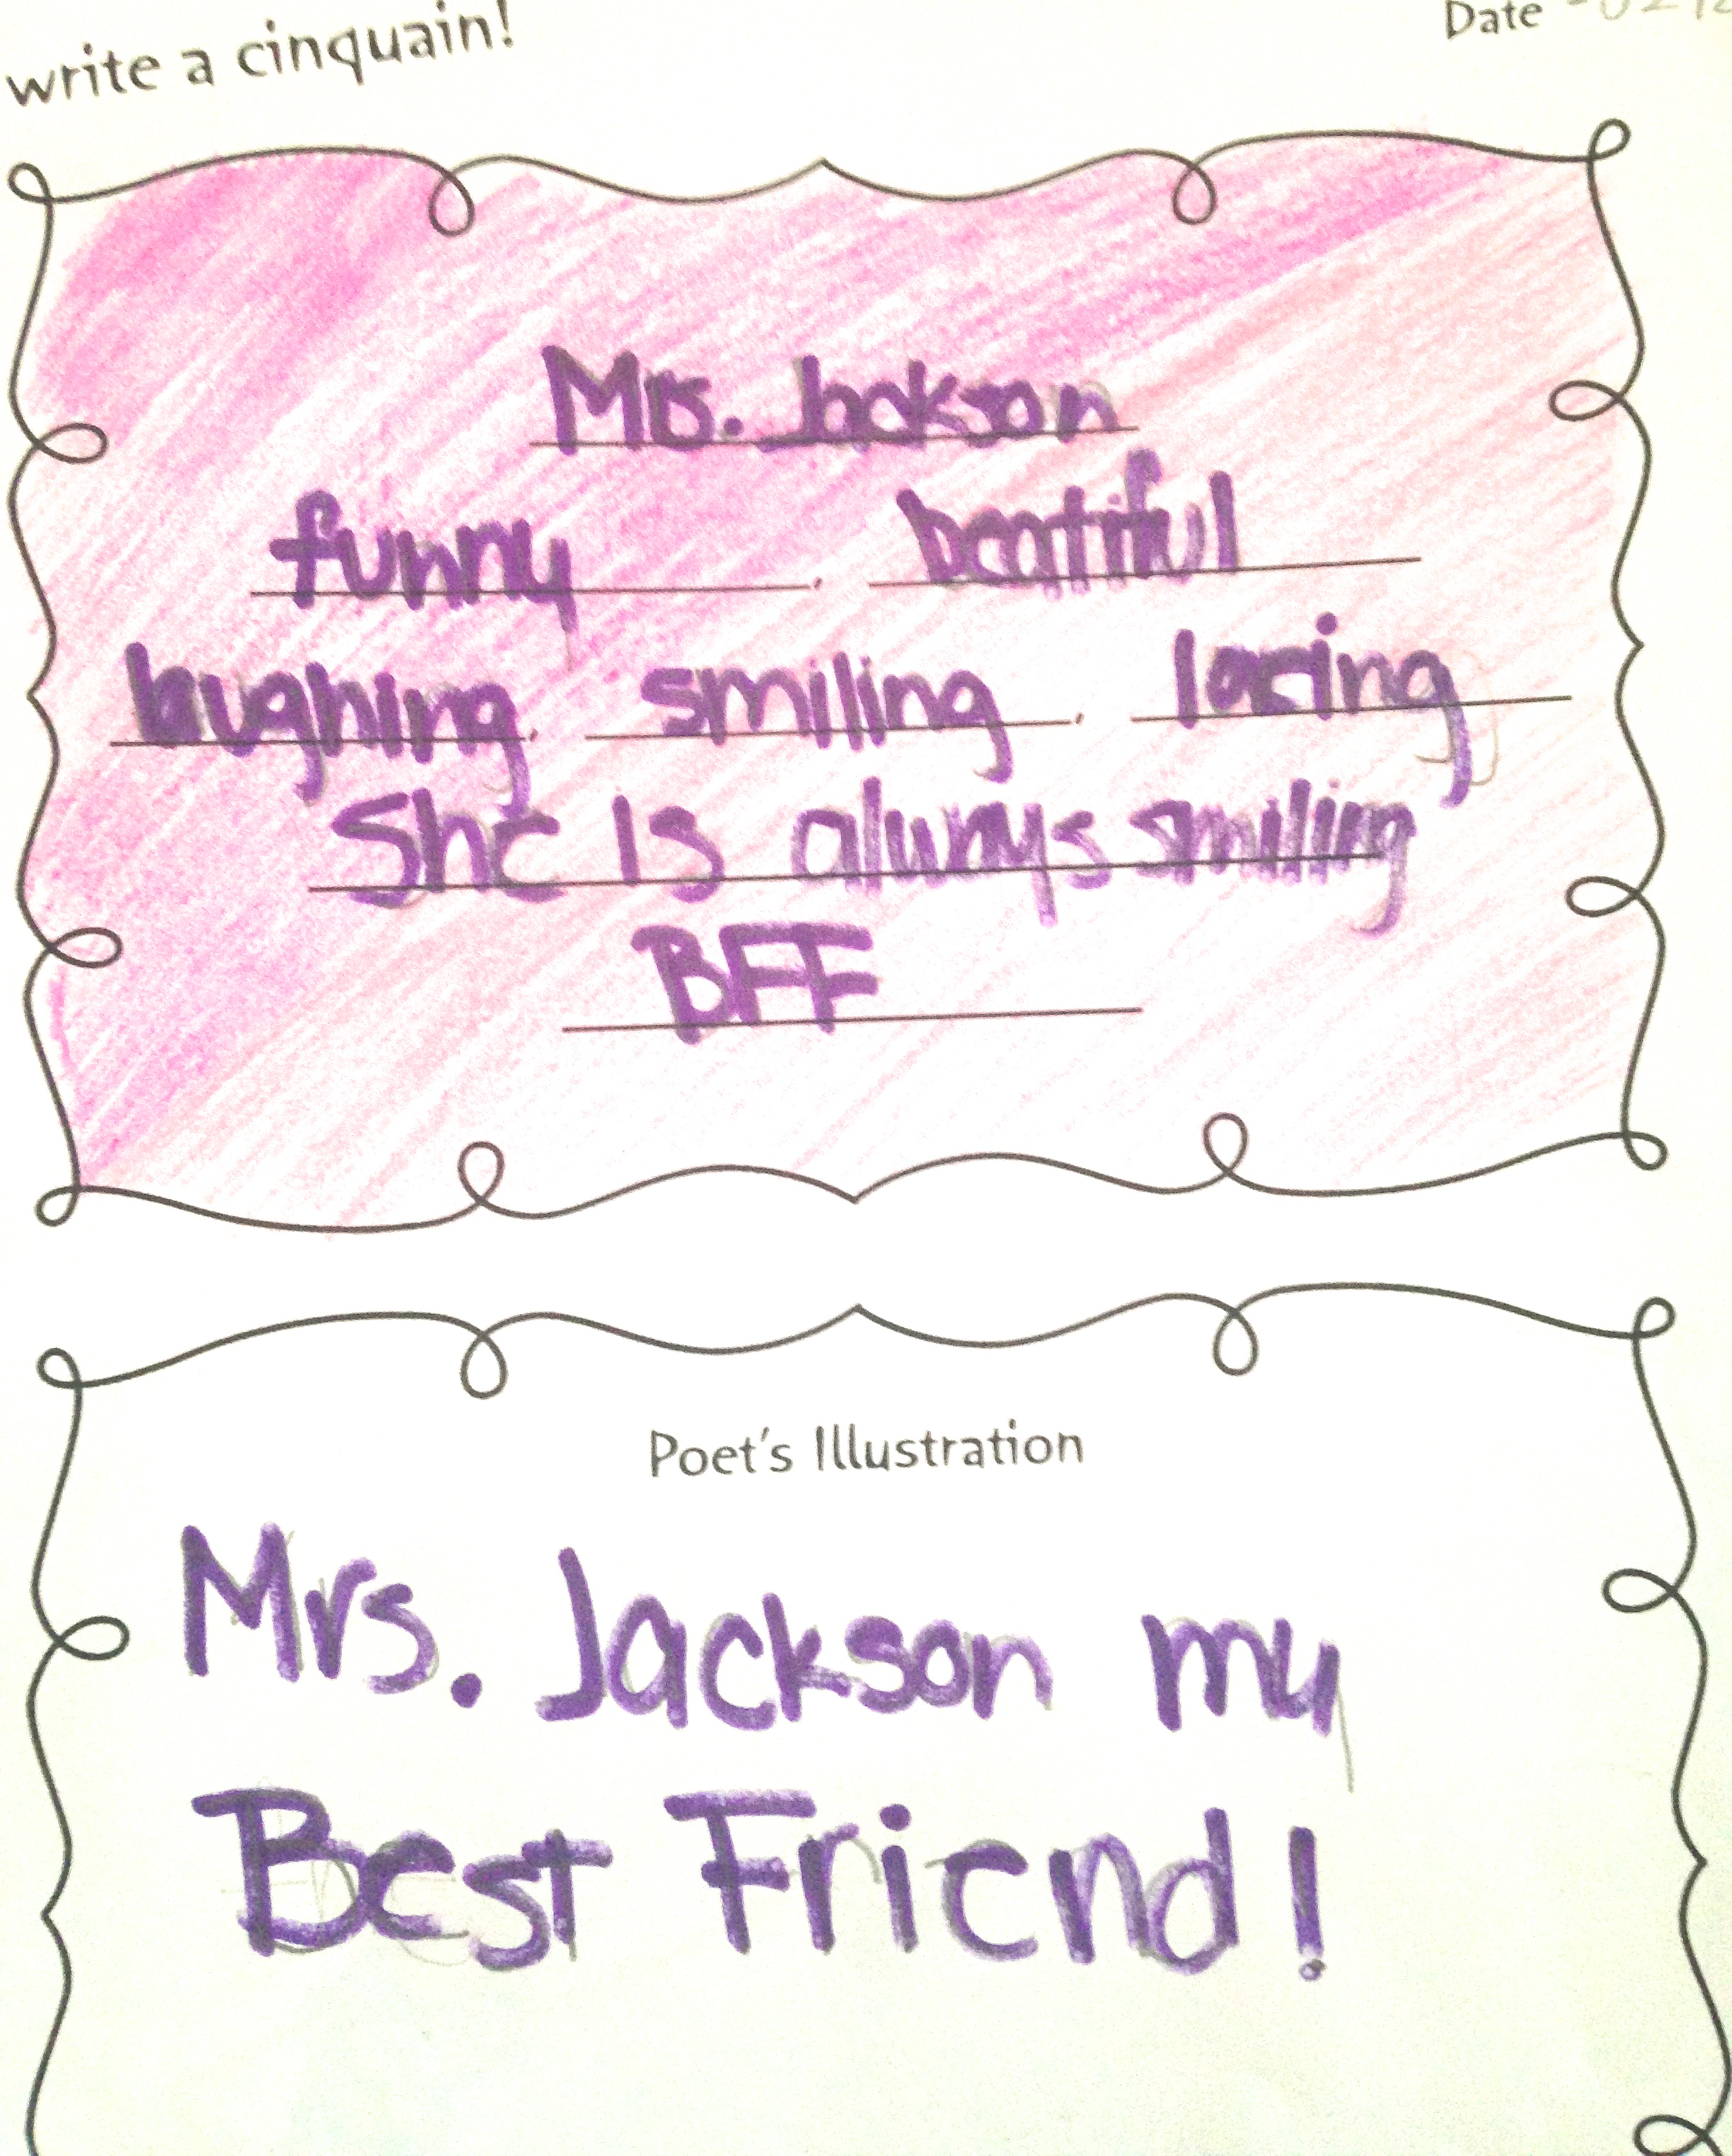 write a cinquain!
Date
Mrs. Jackson
funny, beatiful
laughing, smiling, loving
She is always smiling
BFF
Poet's Illustration
Mrs. Jackson my
Best Friend!